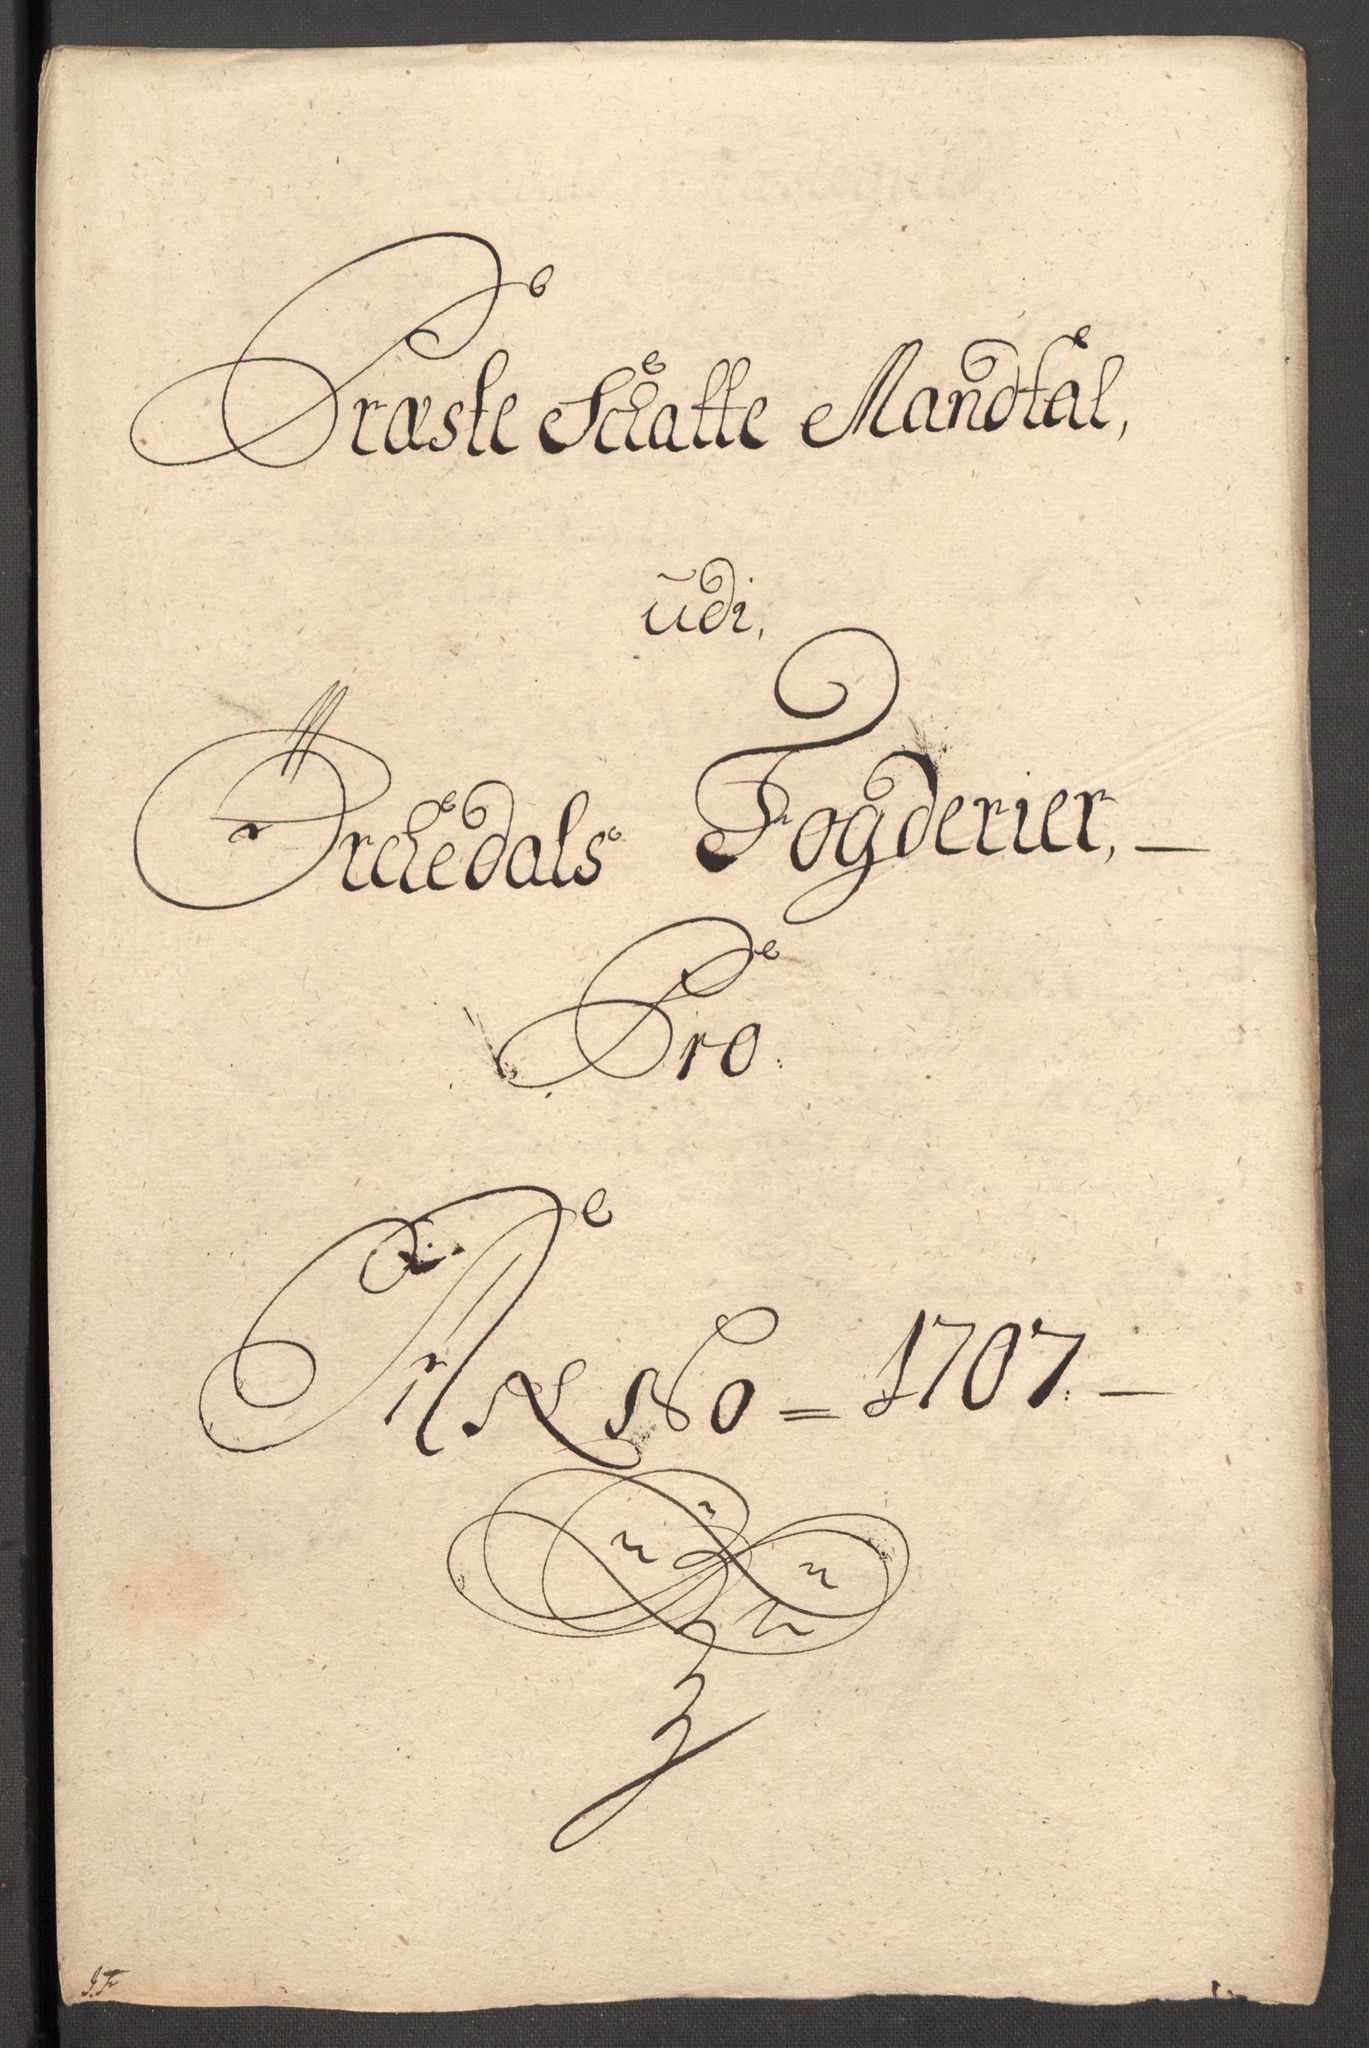 Præste Schatte Mandtal,
udi,
Orchedals Fogderier, —
Pro.
ANNo = 1707. —